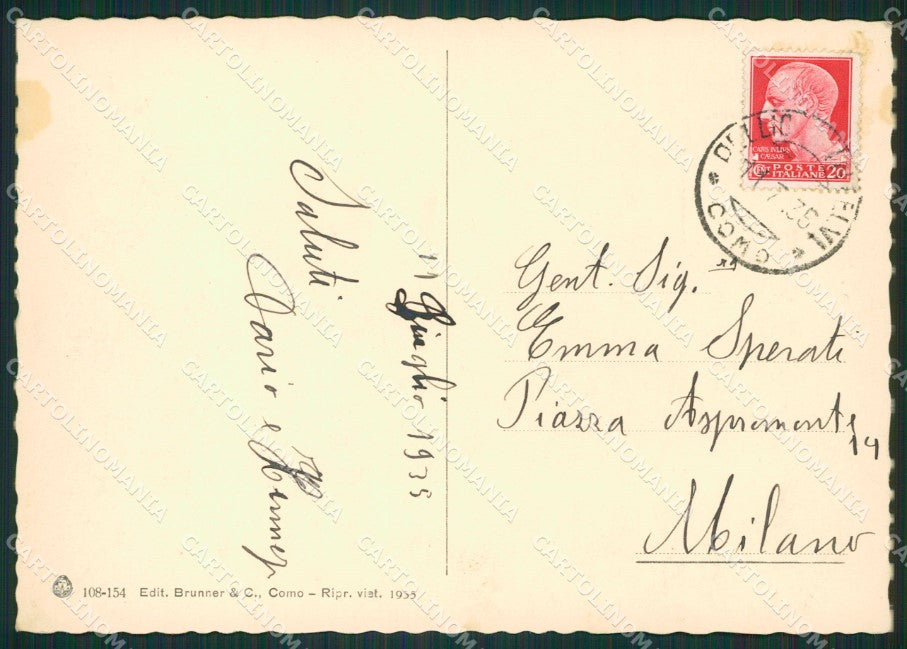 Saluti
Dario e
11 Giuglio 1935
CAIUS IULIUS
CAESAR
POSTE
ITALIANE 20
COMO
35
Gent. Sig.
Emma Sperati
Piazza Aspromonte
14
Milano
108-154 Edit. Brunner & C., Como – Ripr. viet. 1935
CARTOLINOMANIA